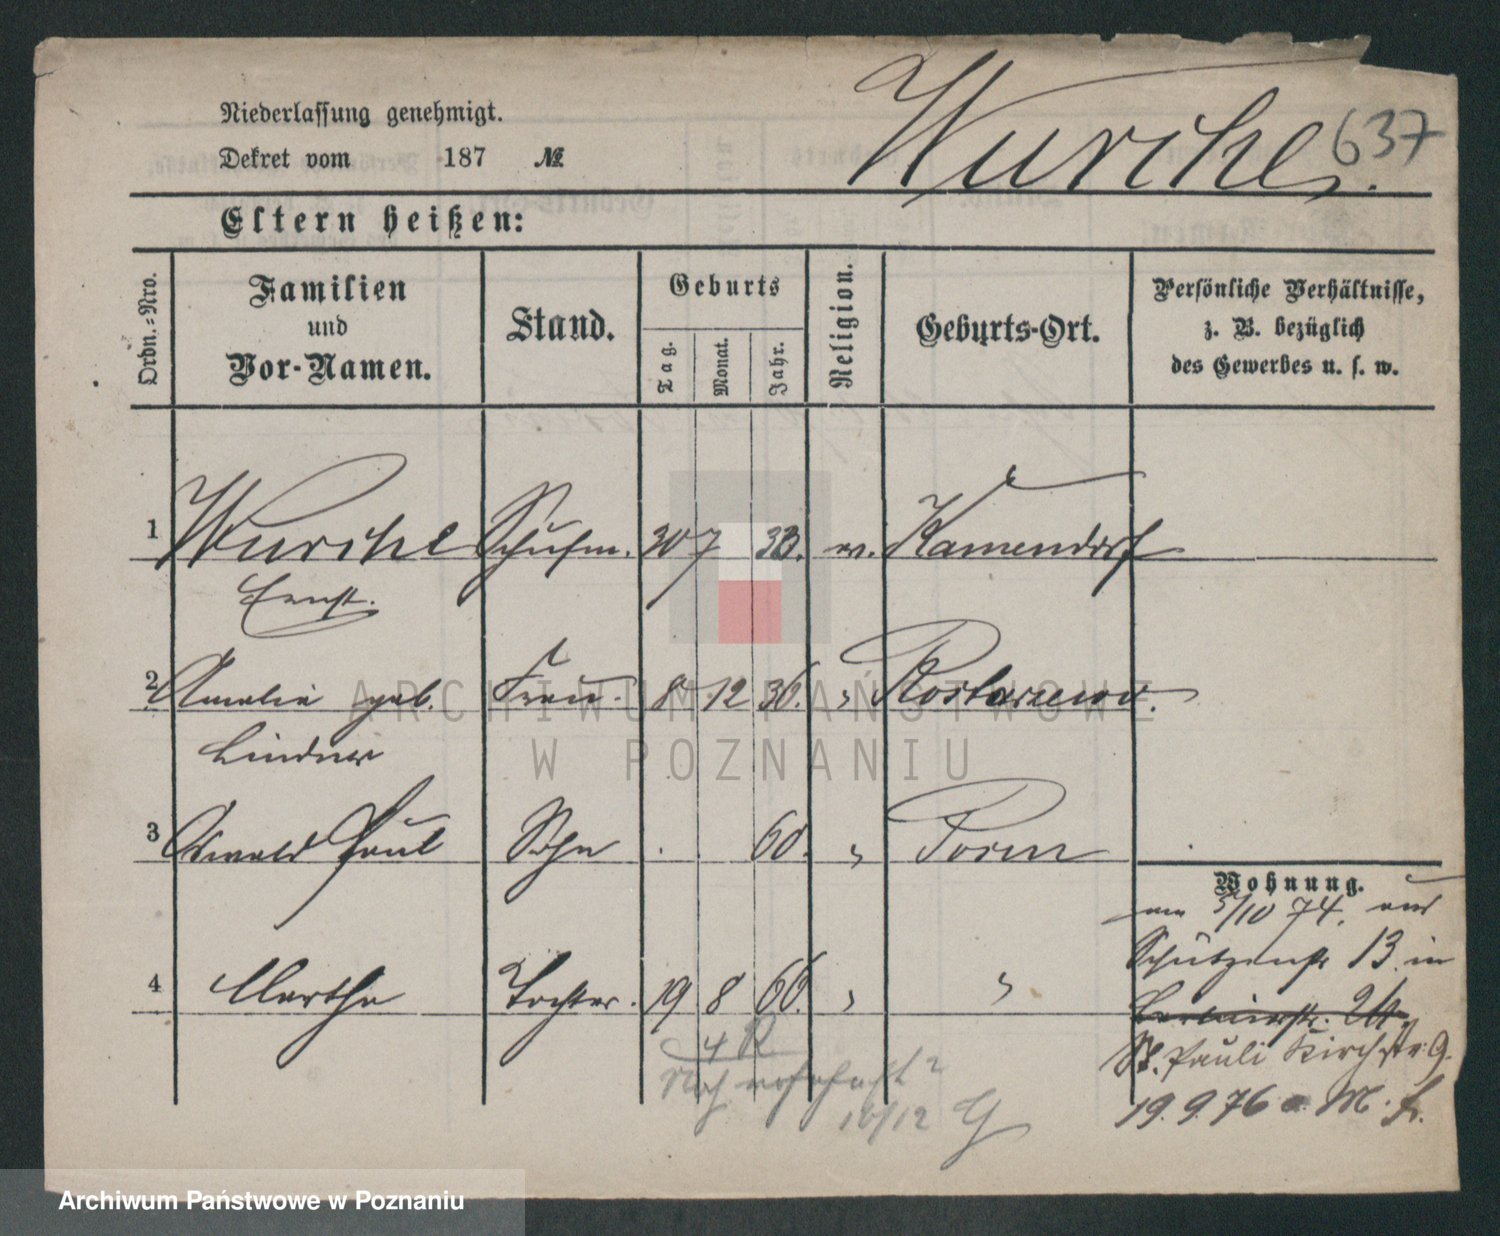 Niederlassung genehmigt.
Dekret vom 187 №
Wursche. 637
Eltern heißen:
Ordn.=Nro.
Familien
und
Vor-Namen.
Stand.
Geburts
Tag.
Monat.
Jahr.
Religion.
Geburts-Ort.
Persönliche Verhältnisse,
z. B. bezüglich
des Gewerbes u. s. w.
1 Schuhm. 30 7 33. ev. Kamendorf
Ernst.
2 Amalie geb. Frau. 8 12 36. " Rostarzewo.
Lindner
3 Oswald Paul Sohn 60. " Posen
4 Martha Tochter. 19 8 66. " "
Wohnung.
am 5/10 74. aus
Schützenstr 13. in
St. Pauli Kirchstr. 9.
19.9.76 a. M. Fr.
4 R
Noch wohnhaft?
16/12 G
ARCHIWUM PAŃSTWOWE
W POZNANIU
Archiwum Państwowe w Poznaniu